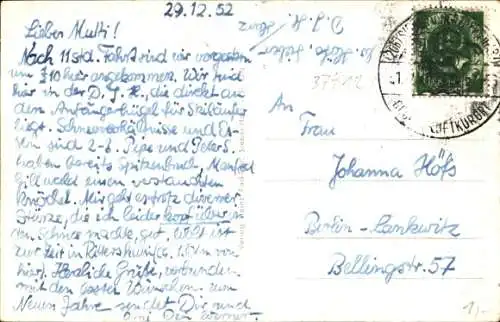 29.12.52
Lieber Mutti!
Nach 11 std. Fahrt sind wir vorgestern
um ½10 hier angekommen. Wir sind
hier in der D.J.H., die direkt an
dem Anfängerhügel für Skiläufer
liegt. Schneeverhältnisse und Es-
sen sind 2-3. Pepe und Peter S.
haben bereits Spitzenbruch, Manfred
Hillwald einen verstauchten
Knöchel. Mir geht es trotz diverser
Stürze, die ich leider kopfüber in
den Schnee machte, gut. Wolf ist
zur Zeit in
hier). Herzliche Grüße, verbunden
mit den besten Wünschen zum
Neuen Jahre sendet Dir und
Dein Werner.
D.J.H.
An
Frau
Johanna Höfs
Berlin-Lankwitz
Bellingstr. 57
LUFTKURORT
1,-